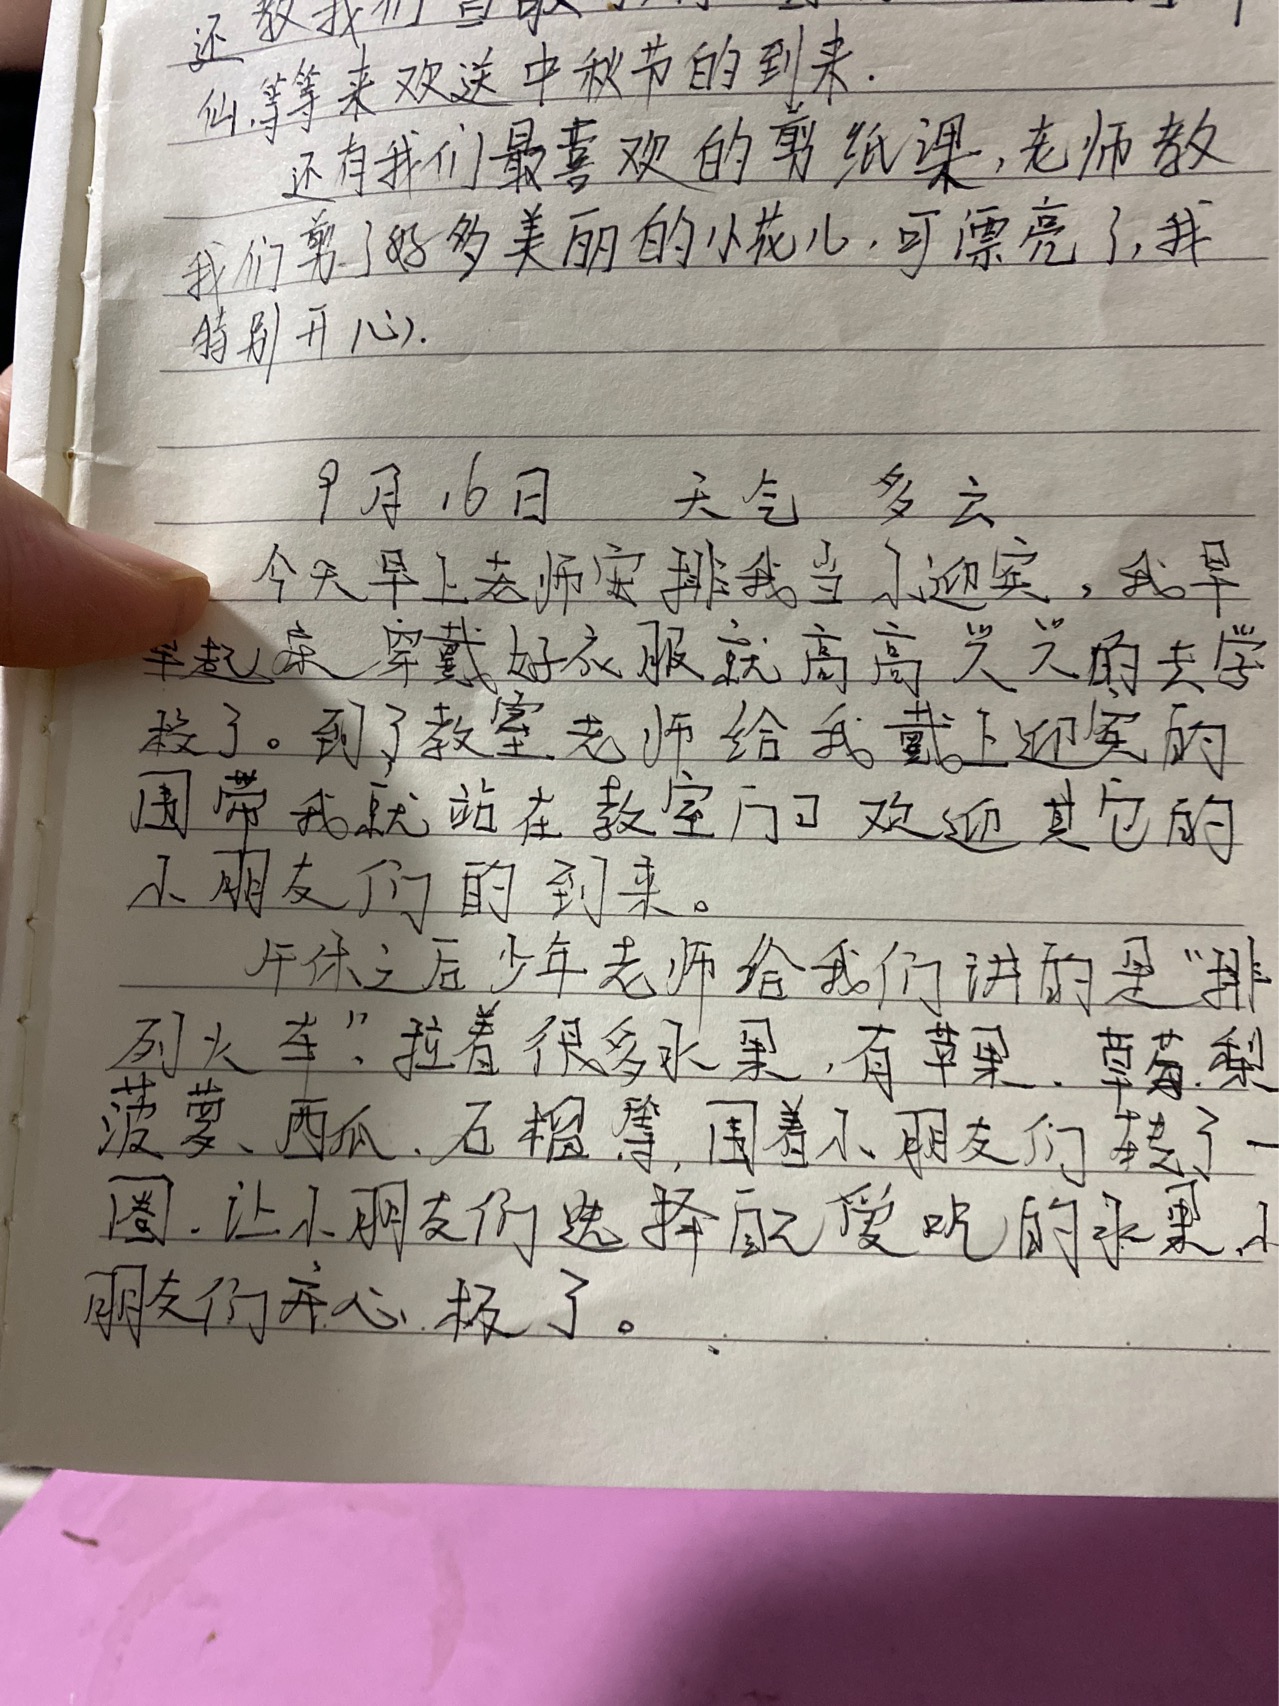 还教我们
仙.等等来欢送中秋节的到来.
还有我们最喜欢的剪纸课,老师教
我们剪了好多美丽的小花儿,可漂亮了,我
特别开心.
9月16日 天气 多云
今天早上老师安排我当小迎宾,我早
早起床穿戴好衣服就高高兴兴的去学
校了。到了教室老师给我戴上迎宾的
围带我就站在教室门口欢迎其它的
小朋友们的到来。
午休之后少年老师给我们讲的是“排
列火车”,拉着很多水果,有苹果、草莓.梨
菠萝、西瓜、石榴等,围着小朋友们转了一
圈.让小朋友们选择自己爱吃的水果,小
朋友们开心极了。